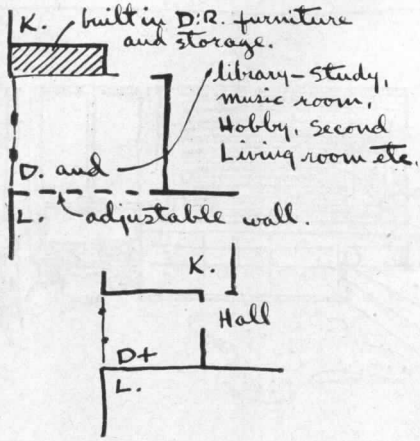 K. built in D.R. furniture
and storage.
library - study,
music room,
Hobby, second
Living room etc.
D. and
L. adjustable wall.
K.
Hall
D+
L.